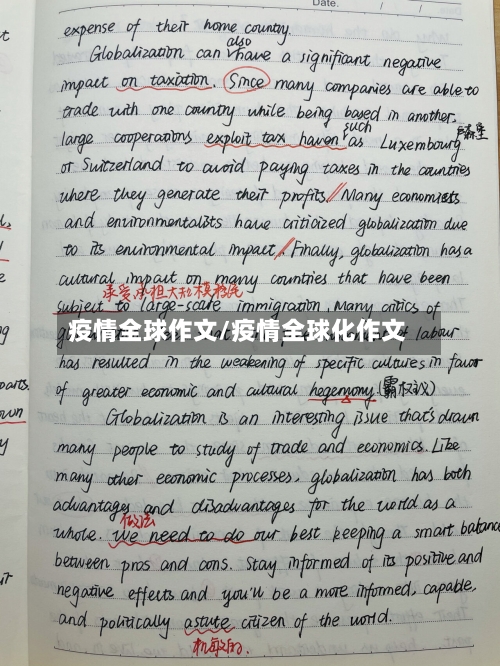 Date. / /
expense of their home country.
also
Globalization can have a significant negative
impact on taxiation. Since many companies are able to
trade with one country while being based in another,
large cooperations exploit tax haven such as Luxembourg 卢森堡
or Suitzerland to avoid paying taxes in the countries
where they generate their profits. Many economists
and environmentalists have criticized globalization due
to its environmental impact. Finally, globalization has a
cultural impact on many countries that have been
承受,承担大规模移民
subject to large-scale immigration. Many critics of
疫情全球作文/疫情全球化作文
labour
has resulted in the weakening of specific cultures in favor
of greater economic and cultural hegemony (霸权主义)
Globalization is an interesting issue that's drawn
many people to study of trade and economics. Like
many other economic processes, globalization has both
advantages and disadvantages for the world as a
做法
whole. We need to do our best keeping a smart balance
between pros and cons. Stay informed of its positive and
negative effects and you'll be a more informed, capable,
and politically astute citizen of the world.
机敏的.